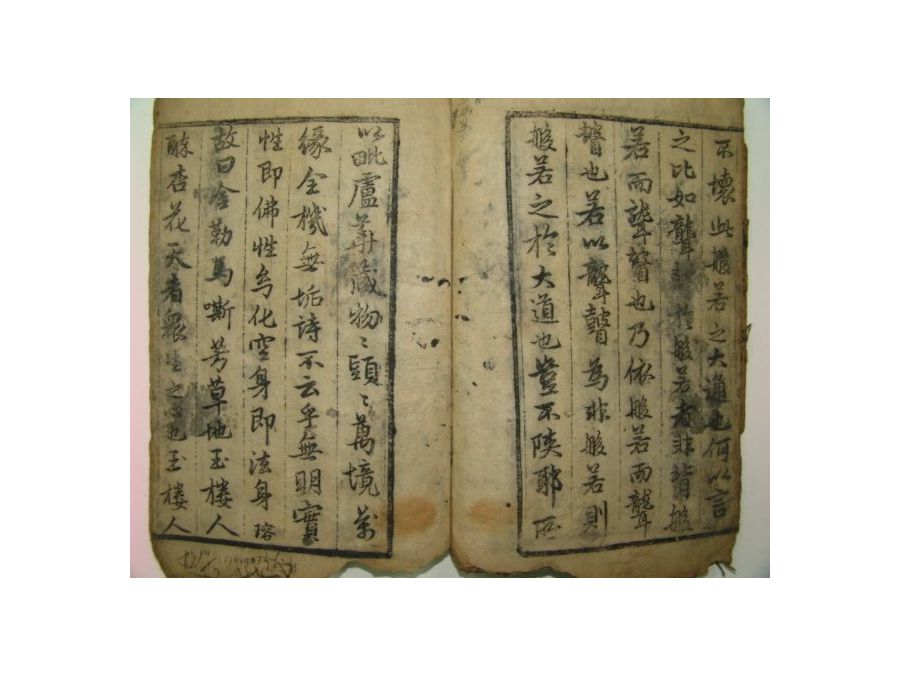 不壞此般若之大道也何以言
之比如聾非於般若者非背般
若而聾瞽也乃依般若而聾
瞽也若以聾瞽為非般若則
般若之於大道也豈不陜耶所
以毗盧華藏物〻頭〻萬境萬
緣全機無垢詩不云乎無明實
性即佛性幻化空身即法身
故曰金勒馬嘶芳草地玉樓人
醉杏花天者眾生之心也玉樓人